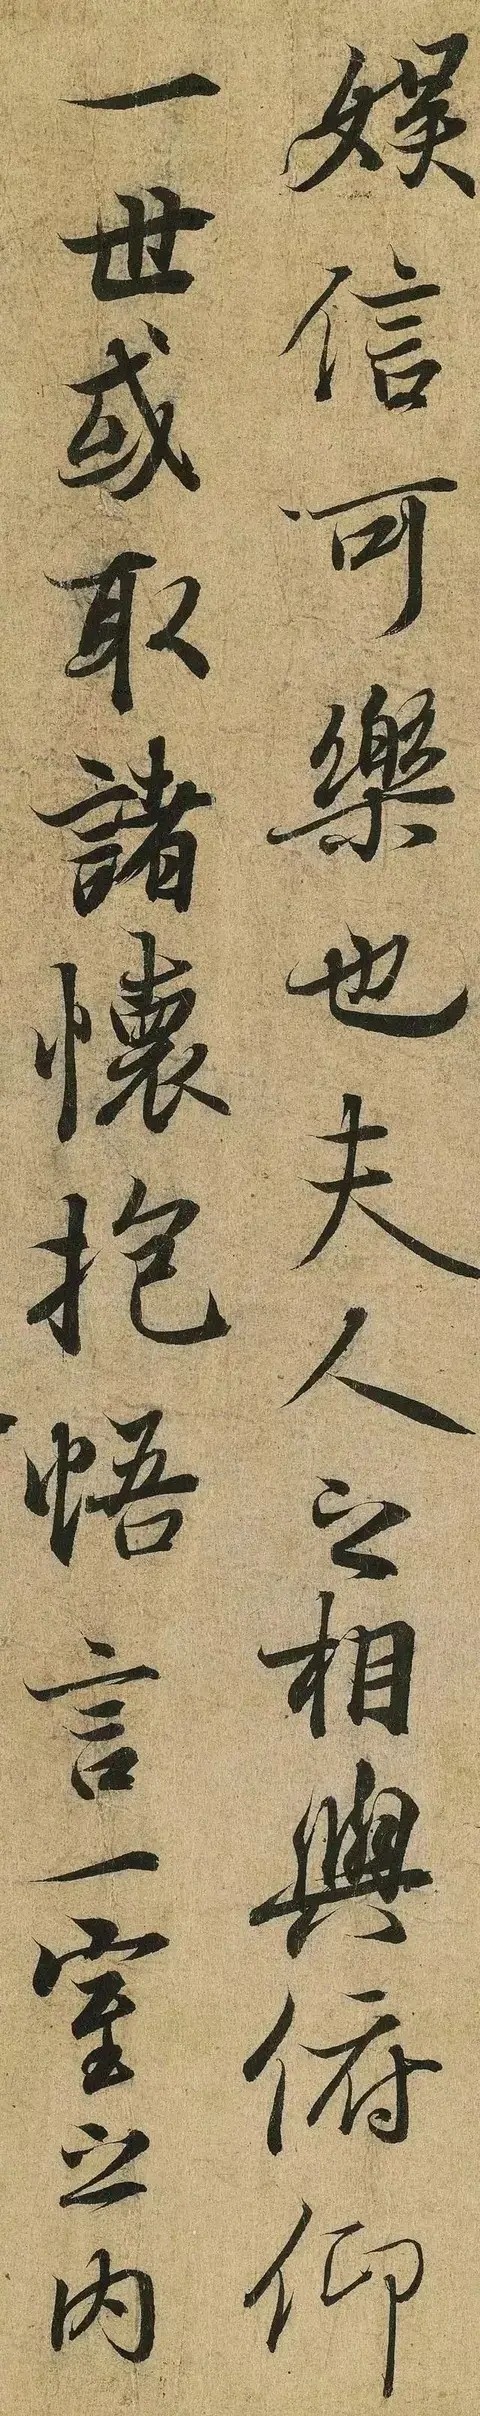 娛信可樂也夫人之相與俯仰
一世或取諸懷抱悟言一室之内